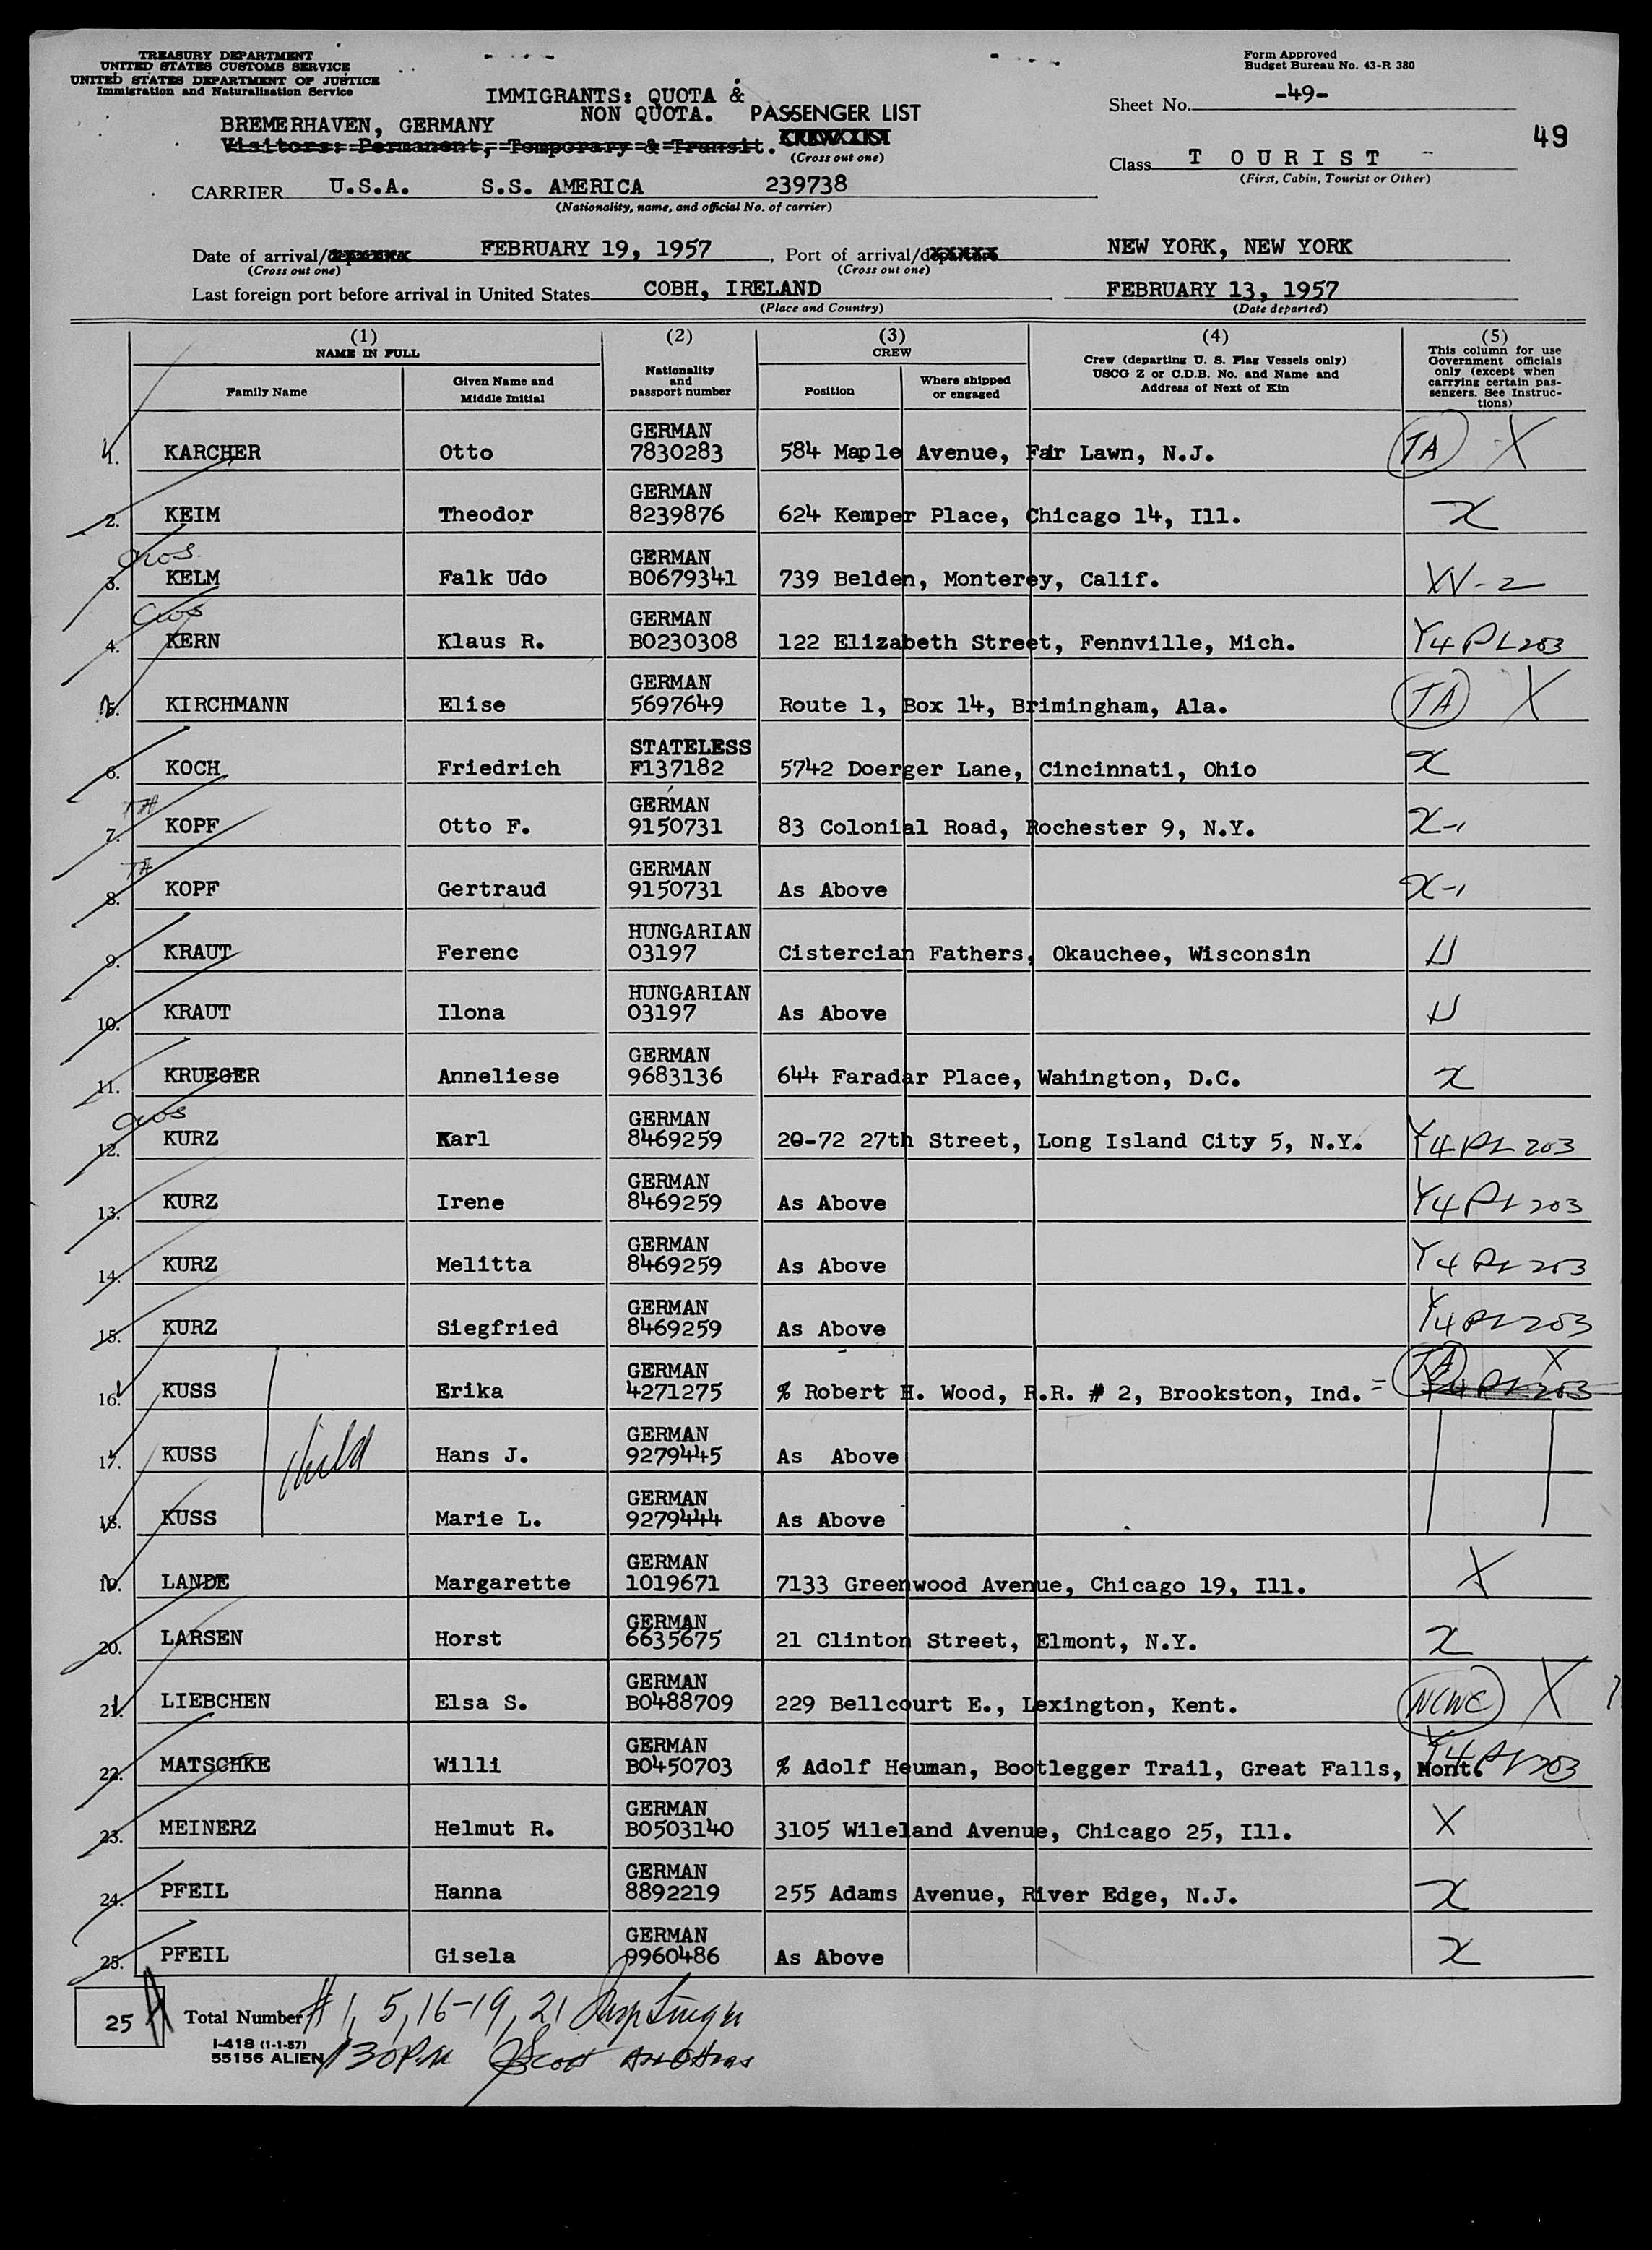 TREASURY DEPARTMENT
UNITED STATES CUSTOMS SERVICE
UNITED STATES DEPARTMENT OF JUSTICE
Immigration and Naturalization Service
Form Approved
Budget Bureau No. 43-R 380
IMMIGRANTS: QUOTA &
NON QUOTA. PASSENGER LIST
Sheet No. -49-
49
BREMERHAVEN, GERMANY
Visitors: Permanent, Temporary & Transit. CREW LIST
(Cross out one)
Class T OURIST
(First, Cabin, Tourist or Other)
CARRIER U.S.A. S.S. AMERICA 239738
(Nationality, name, and official No. of carrier)
Date of arrival/ FEBRUARY 19, 1957, Port of arrival/departure NEW YORK, NEW YORK
(Cross out one) (Cross out one)
Last foreign port before arrival in United States COBH, IRELAND FEBRUARY 13, 1957
(Place and Country) (Date departed)
(1) (2) (3) (4) (5)
NAME IN FULL
Family Name
Given Name and Middle Initial
Nationality and passport number
CREW
Position
Where shipped or engaged
Crew (departing U. S. Flag Vessels only)
USCG Z or C.D.B. No. and Name and
Address of Next of Kin
This column for use
Government officials
only (except when
carrying certain pas-
sengers. See Instruc-
tions)
1. KARCHER Otto GERMAN 7830283 584 Maple Avenue, Fair Lawn, N.J. TA X
2. KEIM Theodor GERMAN 8239876 624 Kemper Place, Chicago 14, Ill. X
3. KELM Falk Udo GERMAN B0679341 739 Belden, Monterey, Calif.
4. KERN Klaus R. GERMAN B0230308 122 Elizabeth Street, Fennville, Mich. Y4 PL 203
5. KIRCHMANN Elise GERMAN 5697649 Route 1, Box 14, Brimingham, Ala. TA X
6. KOCH Friedrich STATELESS F137182 5742 Doerger Lane, Cincinnati, Ohio X
TA
7. KOPF Otto F. GERMAN 9150731 83 Colonial Road, Rochester 9, N.Y. X-1
TA
8. KOPF Gertraud GERMAN 9150731 As Above X-1
9. KRAUT Ferenc HUNGARIAN 03197 Cistercian Fathers, Okauchee, Wisconsin U
10. KRAUT Ilona HUNGARIAN 03197 As Above U
11. KRUEGER Anneliese GERMAN 9683136 644 Faradar Place, Wahington, D.C. X
12. KURZ Karl GERMAN 8469259 20-72 27th Street, Long Island City 5, N.Y. Y4 PL 203
13. KURZ Irene GERMAN 8469259 As Above Y4 PL 203
14. KURZ Melitta GERMAN 8469259 As Above Y4 PL 203
15. KURZ Siegfried GERMAN 8469259 As Above Y4 PL 203
16. KUSS Erika GERMAN 4271275 % Robert H. Wood, R.R. # 2, Brookston, Ind. TA X Y4 PL 203
17. KUSS child Hans J. GERMAN 9279445 As Above
18. KUSS Marie L. GERMAN 9279444 As Above
19. LANDE Margarette GERMAN 1019671 7133 Greenwood Avenue, Chicago 19, Ill. X
20. LARSEN Horst GERMAN 6635675 21 Clinton Street, Elmont, N.Y. X
21. LIEBCHEN Elsa S. GERMAN B0488709 229 Bellcourt E., Lexington, Kent. NCWC X
22. MATSCHKE Willi GERMAN B0450703 % Adolf Heuman, Bootlegger Trail, Great Falls, Mont. Y4 PL 203
23. MEINERZ Helmut R. GERMAN B0503140 3105 Wileland Avenue, Chicago 25, Ill. X
24. PFEIL Hanna GERMAN 8892219 255 Adams Avenue, River Edge, N.J. X
25. PFEIL Gisela GERMAN 9960486 As Above X
25 Total Number # 1, 5, 16-19, 21
I-418 (1-1-57)
55156 ALIEN 130 PM